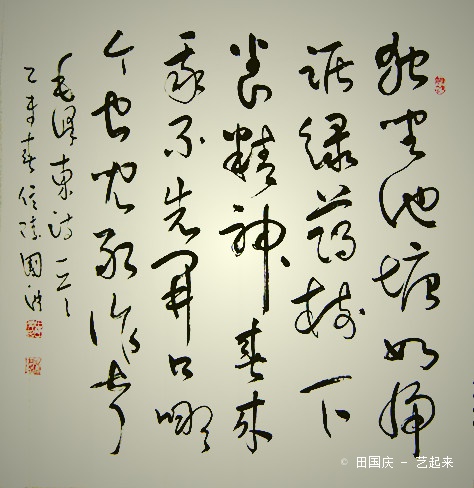 独坐池塘如虎
踞绿荫树下
养精神春来
我不先開口哪
个虫儿敢作声
毛泽东诗一首
乙未春
© 田国庆 - 艺起来